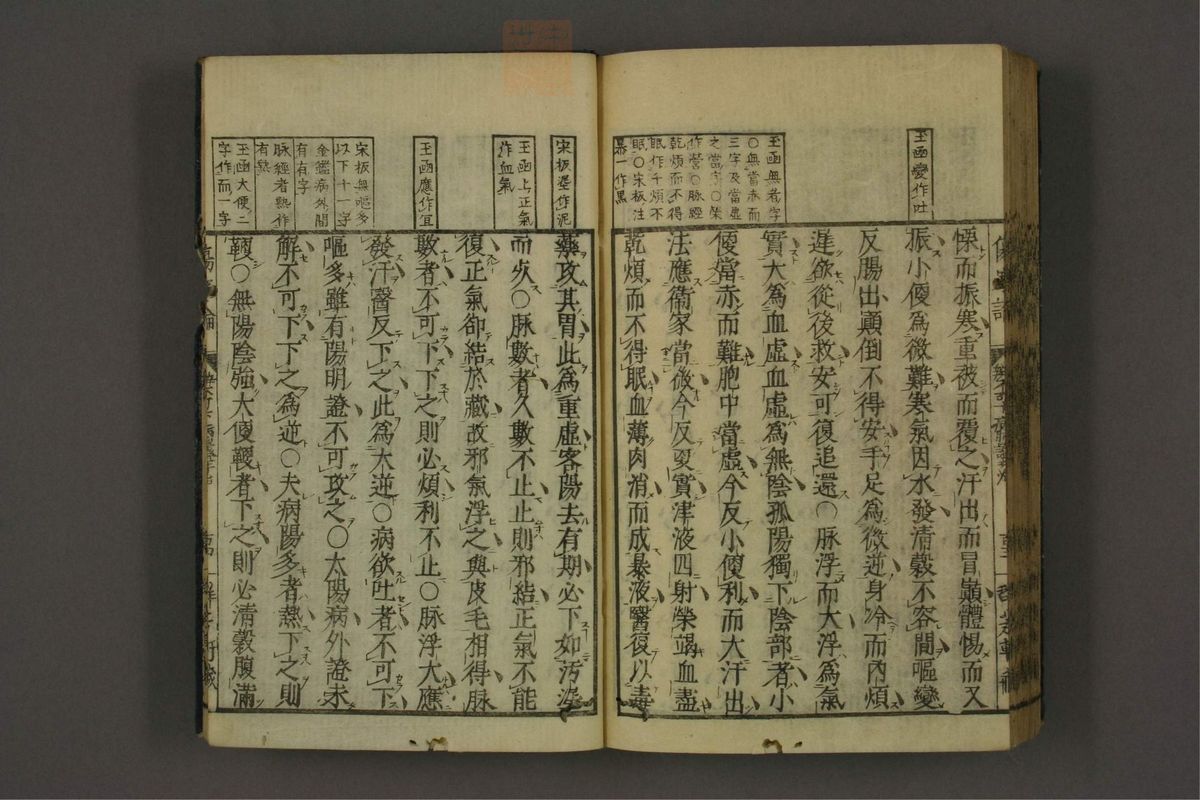 玉函變作吐
慄而振寒重被而覆之汗出而冒巓體惕而又
振小便爲微難寒氣因水發淸穀不容間嘔變
反腸出顚倒不得安手足爲微逆身冷而內煩
遲欲從後救安可復追還○脉浮而大浮爲氣
玉函無者字
○無當赤而
三字及當虛
之當字○榮
作營○脉經
乾煩而不得
眠作干煩不
眠○宋板注
暴一作黑
實大爲血虛血虛爲無陰孤陽獨下陰部者小
便當赤而難胞中當虛今反小便利而大汗出
法應衞家當微今反更實津液四射榮竭血盡
乾煩而不得眠血薄肉消而成暴液醫復以毒
宋板埿作泥
藥攻其胃此爲重虛客陽去有期必下如汚埿
玉函上正氣
作血氣
而死○脉數者久數不止止則邪結正氣不能
復正氣卻結於藏故邪氣浮之與皮毛相得脉
玉函應作宜
數者不可下下之則必煩利不止○脉浮大應
發汗醫反下之此爲大逆○病欲吐者不可下
宋板無嘔多
以下十一字
金鑑病外間
有有字
嘔多雖有陽明證不可攻之○太陽病外證未
脉經者熱作
有熱
解不可下下之爲逆○夫病陽多者熱下之則
玉函大便二
字作而一字
鞕○無陽陰強大便鞕者下之則必淸穀腹滿